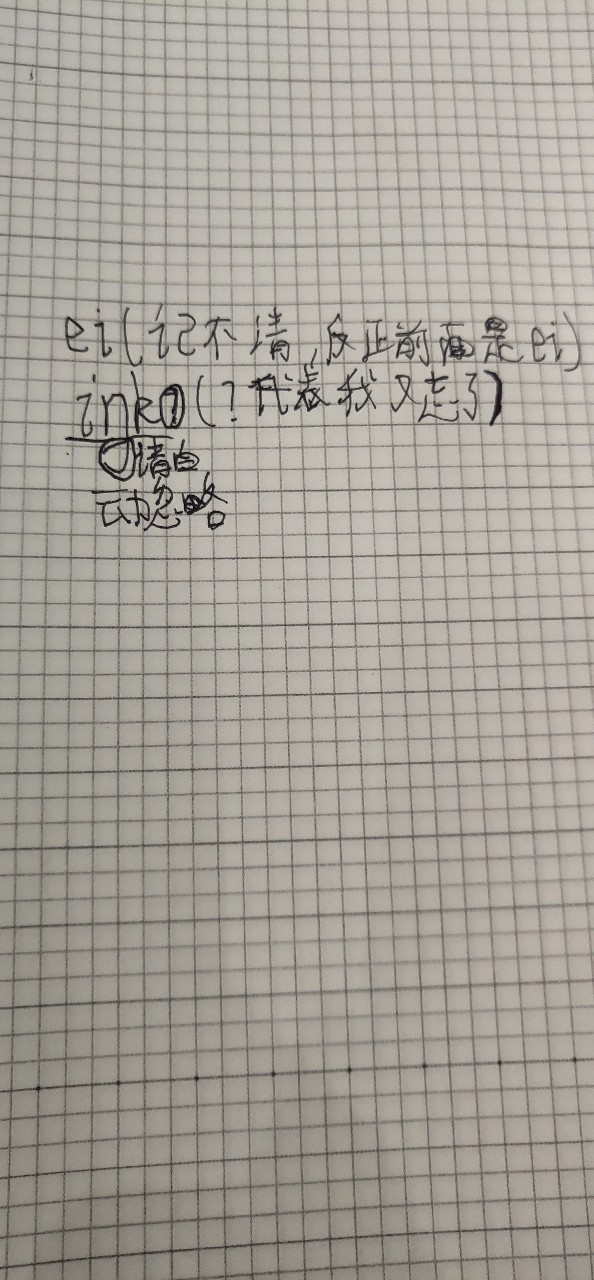 ei(记不清,反正前面是ei)
ink?(?代表我又忘了)
请自
动忽略。